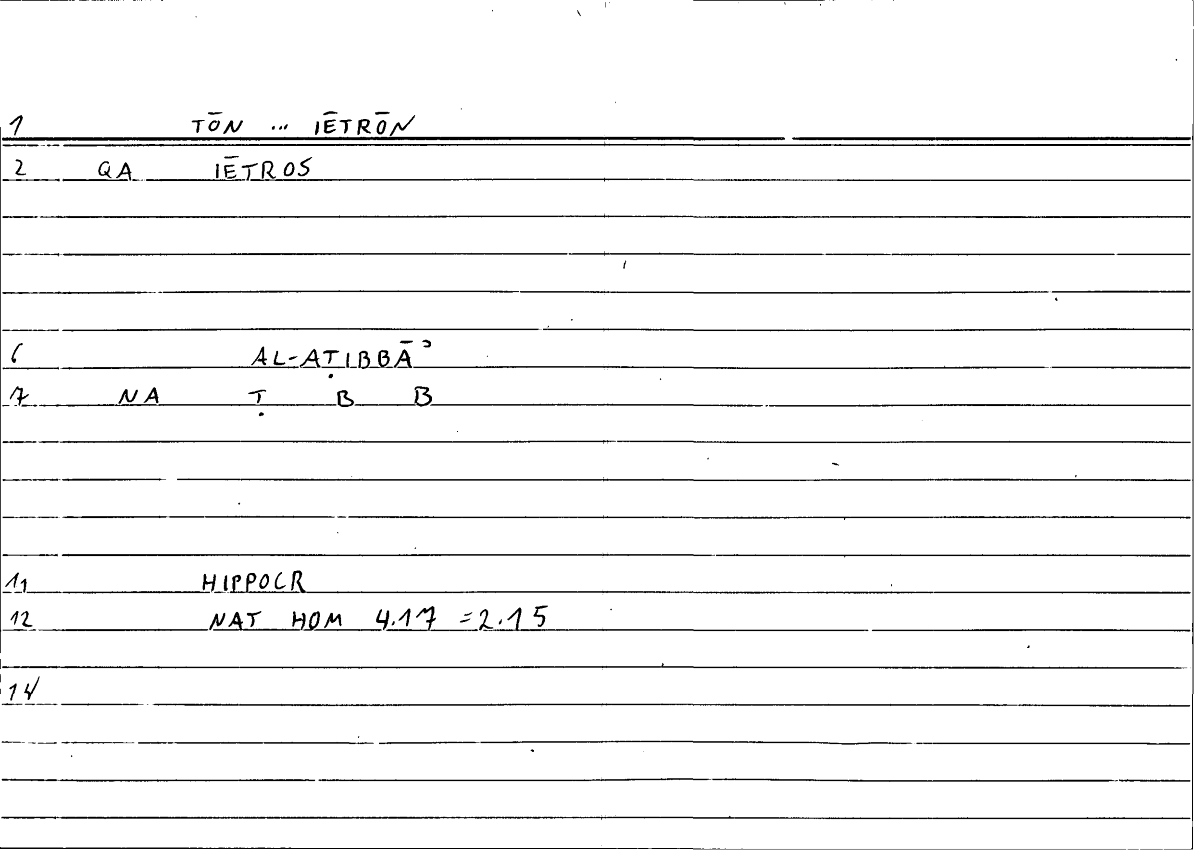 1 TŌN ... IĒTRŌN
2 QA IĒTROS
6 AL-AṬIBBĀʾ
7 NA Ṭ B B
11 HIPPOCR
12 NAT HOM 4.17 =2.15
14